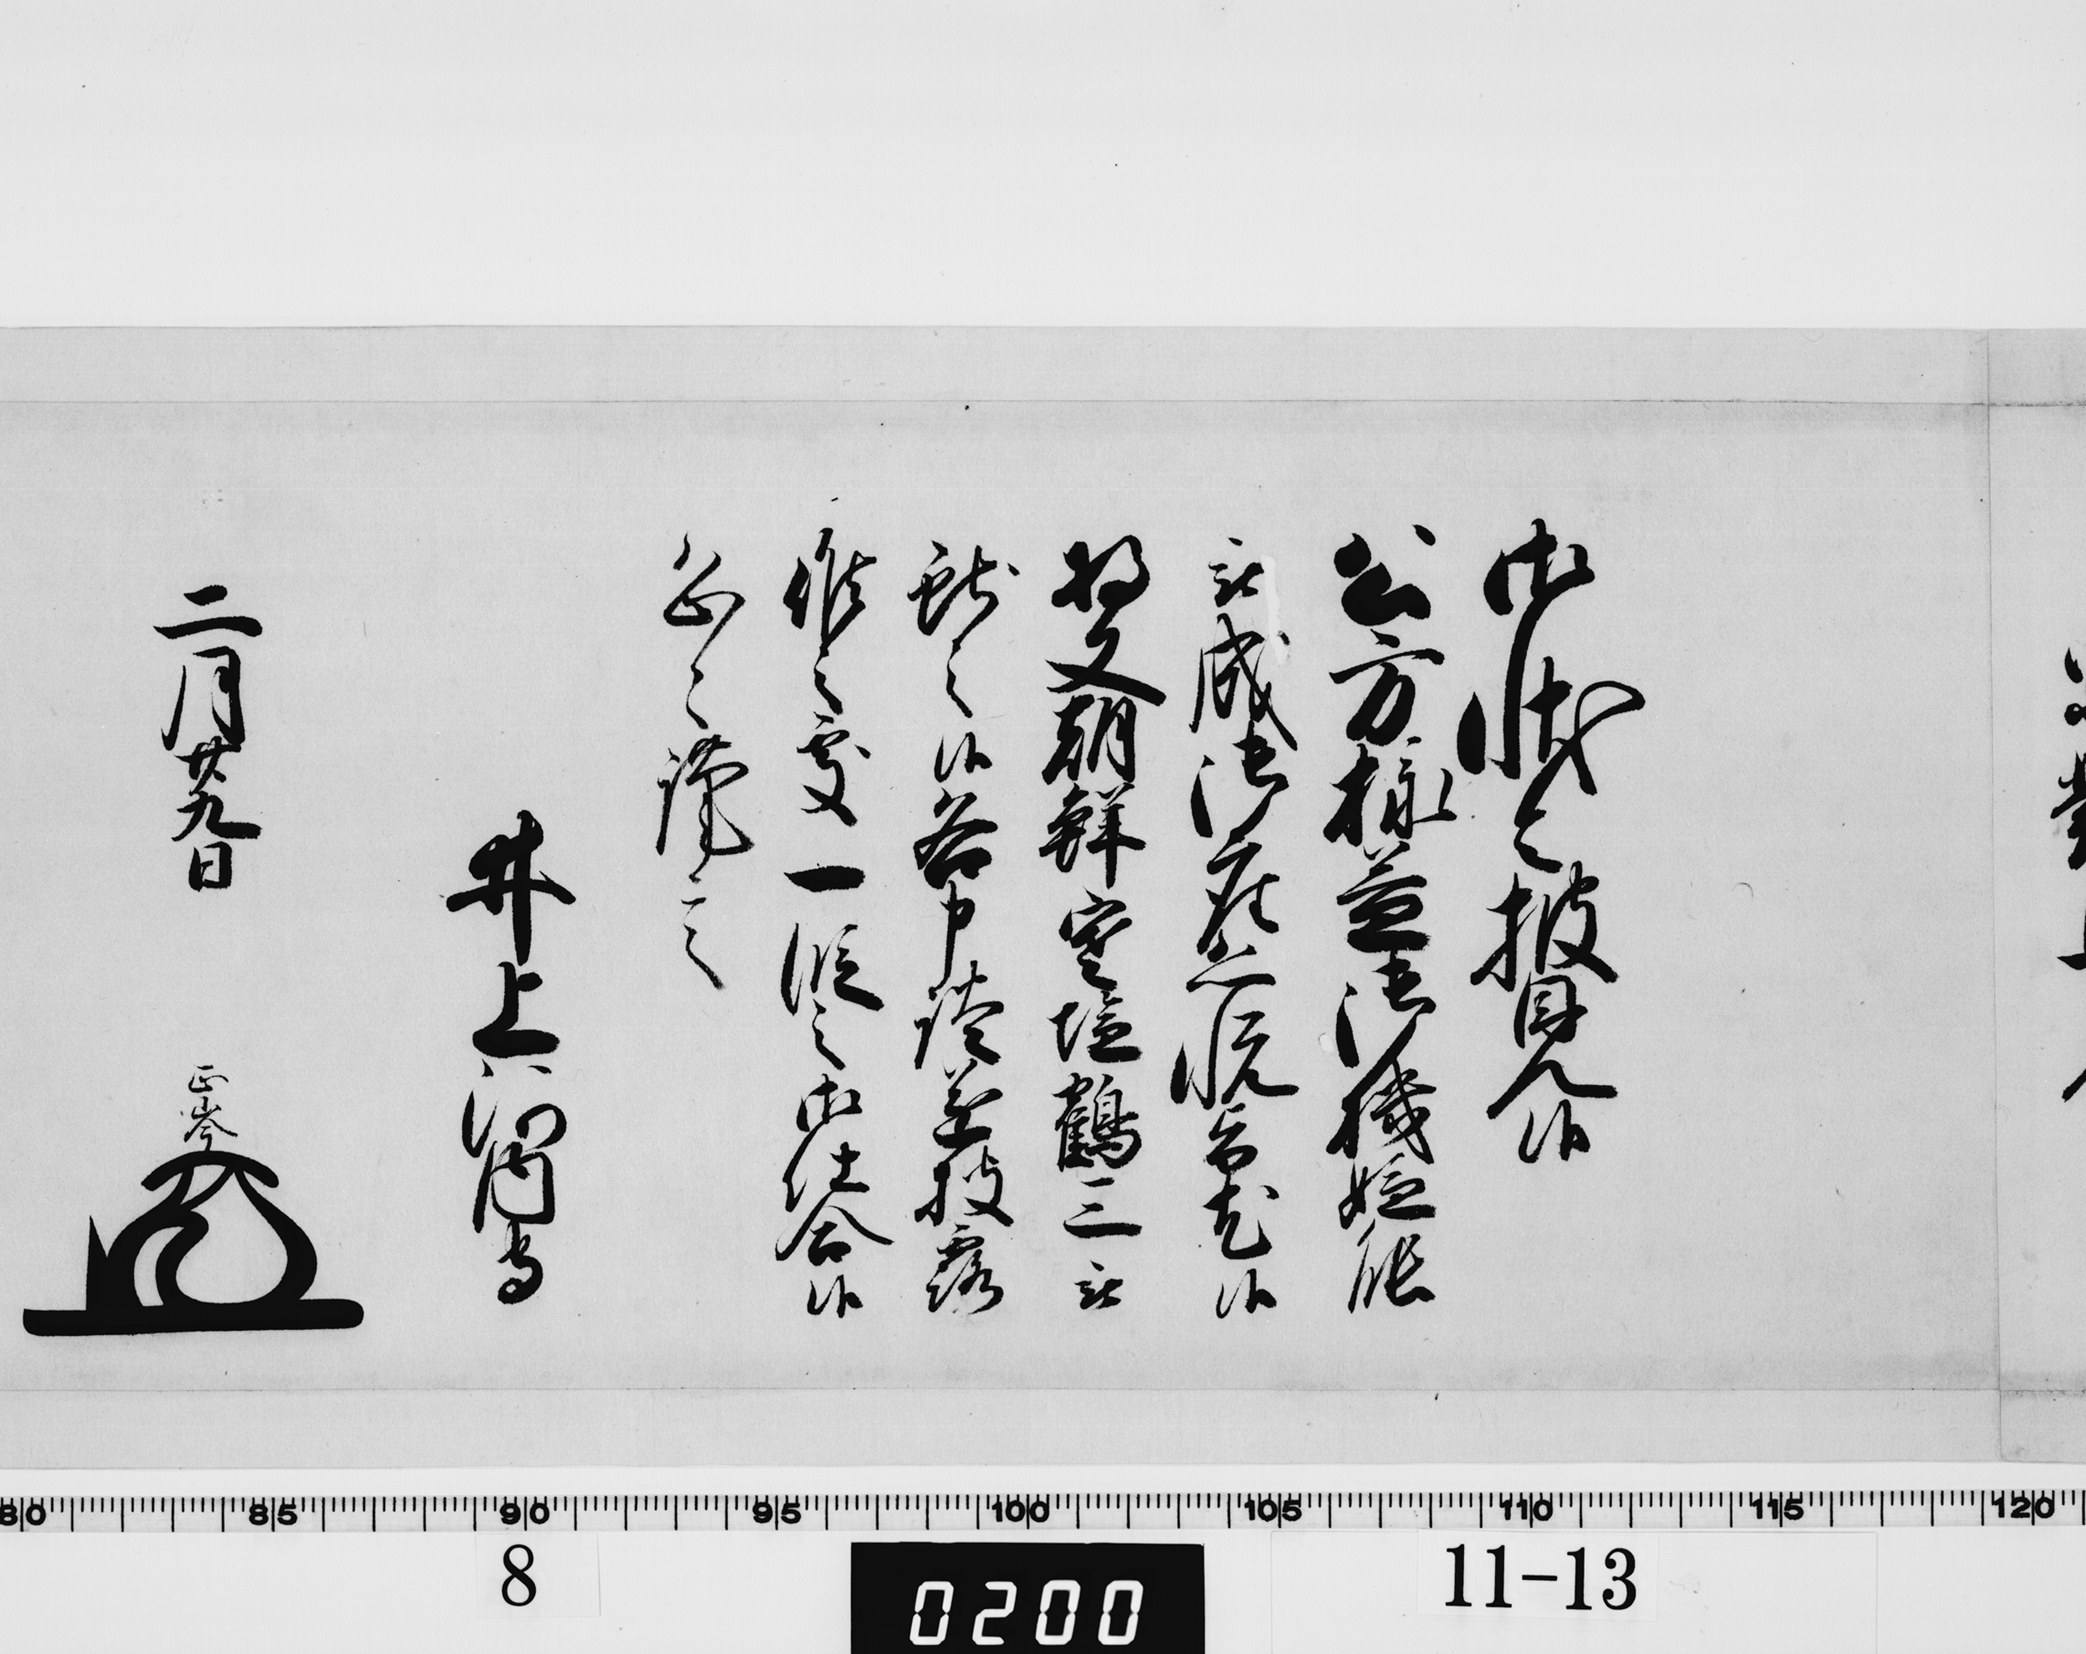 御状令披見候
公方様益御機嫌能
被成御座恐悦旨尤候
将又朝鮮寒塩鶴三被
献之候各申談遂披露
候之処一段之御仕合候
恐々謹言
井上河内守
二月廿九日
正岑
80 85 90 95 100 105 110 115 120
8
0200
11-13